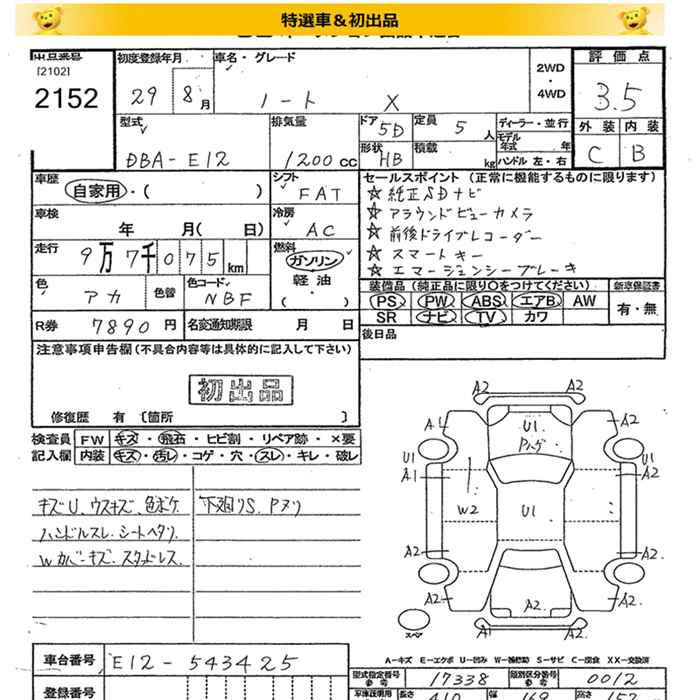 特選車&初出品
[2102]
2152
初度登録年月
29 8月
車名・グレード
ノート X
2WD
・
4WD
評価点
3.5
外装 内装
C B
型式
DBA-E12
排気量
1200 cc
ドア
5D
形状
HB
定員
5 人
積載
kg
ディーラー・並行
モデル
年式 年
ハンドル 左・右
車歴
自家用・( )
シフト
FAT
車検
年 月( 日)
冷房
AC
走行
9万7千075 km
燃料
ガソリン
軽油
( )
色
アカ
色替
色コード
NBF
R券 7890円
名変通知期限 月 日
セールスポイント (正常に機能するものに限ります)
☆純正SDナビ
☆アラウンドビューカメラ
☆前後ドライブレコーダー
☆スマートキー
☆エマージェンシーブレーキ
装備品 (純正品に限り○をつけてください)
PS PW ABS エアB AW
SR ナビ TV カワ
新車保証書
有・無
後日品
注意事項申告欄(不具合内容等は具体的に記入して下さい)
初出品
修復歴 有 〔箇所 〕
検査員
記入欄
FW キズ・飛石・ヒビ割・リペア跡・×要
内装 キズ・汚レ・コゲ・穴・スレ・キレ・破レ
キズU、ウスキズ、色ボケ
ハンドルスレ、シートヘタリ
Wカバーキズ、スタッドレス
下廻りS、Pヌリ
A2 A2
A1 U1 A2
Pハゲ
U1 U1
A1 A2
W2 U1
A2 A2
A2 A2 A2
A1 A2
スペア
A-キズ E-エクボ U-凹み W-補修跡 S-サビ C-腐食 XX-交換済
車台番号 E12-543425
登録番号
型式指定番号
参考
17338
類別区分番号
参考
0012
長さ 幅 高さ